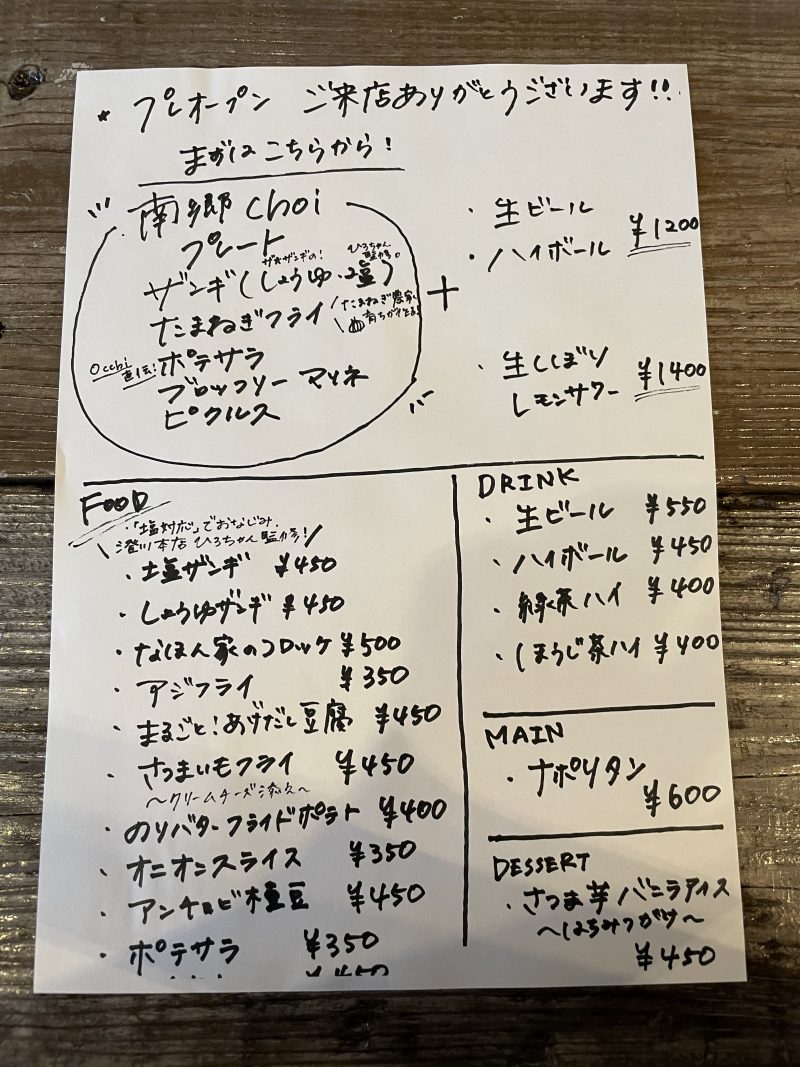 * プレオープン ご来店ありがとうございます!!
まずはこちらから!
南郷 choi
プレート
ザンギ(しょうゆ・塩)
ひろちゃん
監修。
たまねぎフライ
たまねぎ農家
Occhi
直伝!
ポテサラ
ブロッコリー マリネ
ピクルス
+
・生ビール
・ハイボール ¥1200
・生しぼり
レモンサワー ¥1400
FOOD
・「塩対応」でおなじみ
澄川本店 ひろちゃん監修!
・塩ザンギ ¥450
・しょうゆザンギ ¥450
・なほん家のコロッケ ¥500
・アジフライ ¥350
・まるごと!あげだし豆腐 ¥450
・さつまいもフライ ¥450
〜クリームチーズ添え〜
・のりバターフライドポテト ¥400
・オニオンスライス ¥350
・アンチョビ枝豆 ¥450
・ポテサラ ¥350
¥450
DRINK
・生ビール ¥550
・ハイボール ¥450
・緑茶ハイ ¥400
・ほうじ茶ハイ ¥400
MAIN
・ナポリタン
¥600
DESSERT
・さつま芋バニラアイス
〜はちみつがけ〜
¥450